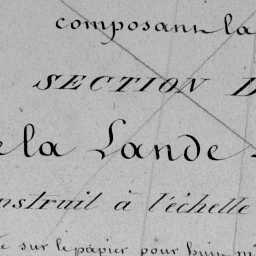 composant la
SECTION D
la Lande
construit à l'échelle
sur le papier pour huit